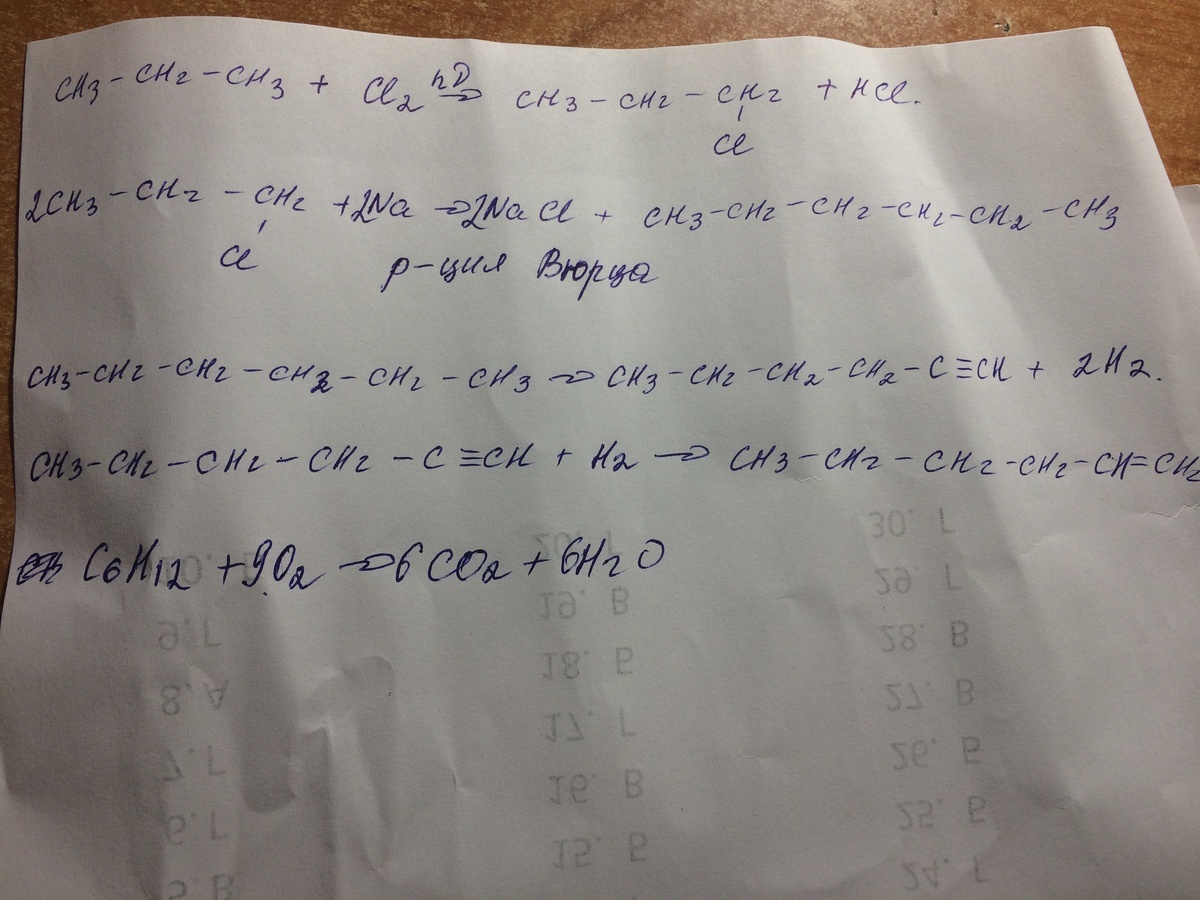 CH3 – CH2 – CH3 + Cl2 hν→ CH3 – CH2 – CH2 + HCl.
Cl
2CH3 – CH2 – CH2 + 2Na → 2NaCl + CH3–CH2–CH2–CH2–CH2–CH3
Cl р-ция Вюрца
CH3–CH2–CH2–CH2–CH2–CH3 → CH3–CH2–CH2–CH2–C≡CH + 2H2.
CH3–CH2–CH2–CH2–C≡CH + H2 → CH3–CH2–CH2–CH2–CH=CH2
C6H12 + 9O2 → 6CO2 + 6H2O
30. Г
29. Г
19. В
9. Г
28. В
18. Б
8. А
27. В
17. Г
7. Г
26. Б
16. В
6. Г
25. Б
15. Б
5. В
24. Г